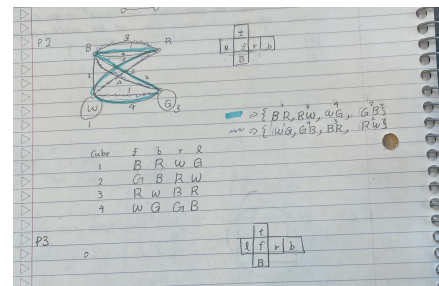 P2
B R
W G
1 4 3
t
l f r b
B
⇒ { BR, RW, WG, GB }
⇒ { WG, GB, BR, RW }
Cube f b r l
1 B R W G
2 G B R W
3 R W B R
4 W G G B
P3
t
l f r b
B